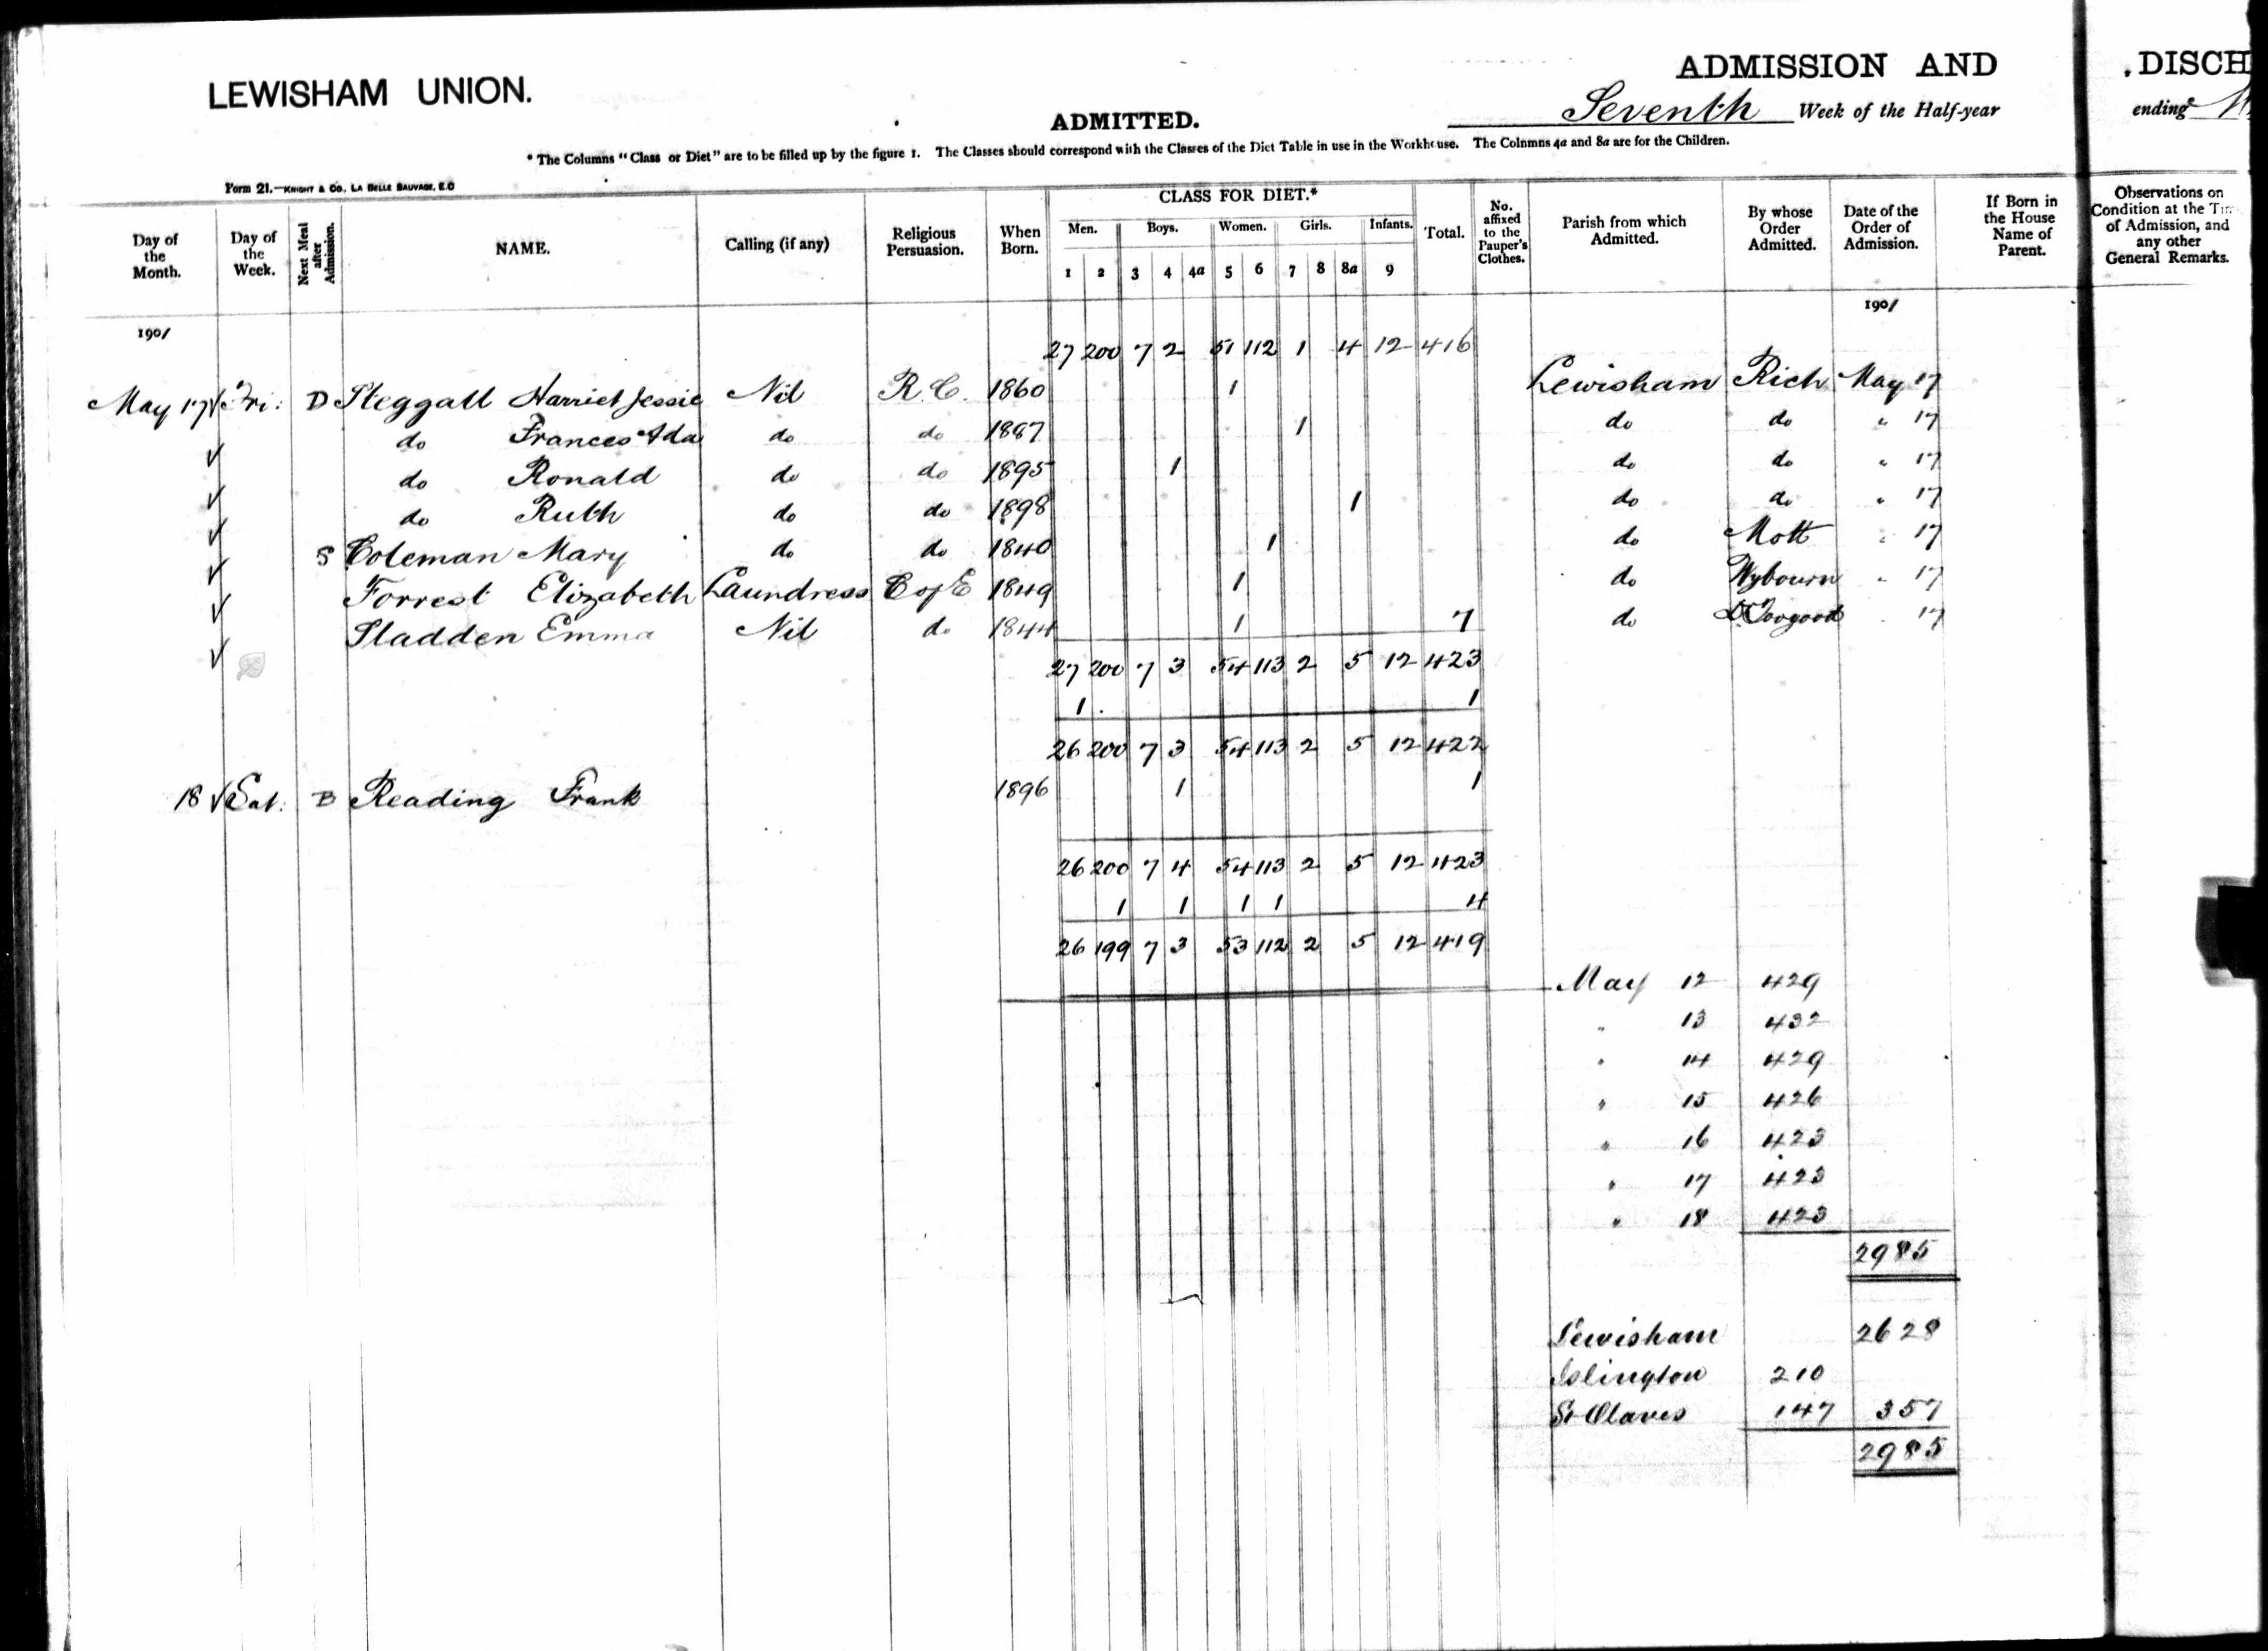 LEWISHAM UNION.
ADMISSION AND
DISCH
ADMITTED.
Seventh Week of the Half-year
ending
* The Columns "Class or Diet" are to be filled up by the figure 1. The Classes should correspond with the Classes of the Diet Table in use in the Workhouse. The Colnmns 4a and 8a are for the Children.
Form 21.—KNIGHT & CO. LA BELLE SAUVAGE, E.C
Day of the Month. Day of the Week. Next Meal after Admission. NAME. Calling (if any) Religious Persuasion. When Born. CLASS FOR DIET.* Total. No. affixed to the Pauper's Clothes. Parish from which Admitted. By whose Order Admitted. Date of the Order of Admission. If Born in the House Name of Parent. Observations on Condition at the Tim of Admission, and any other General Remarks.
Men. Boys. Women. Girls. Infants.
1 2 3 4 4a 5 6 7 8 8a 9
1901 1901
27 200 7 2 51 112 1 4 12 416
May 17 Fri: D Steggall Harriet Jessie Nil R.C. 1860 1 Lewisham Rich May 17
do Frances Ada do do 1887 1 do do " 17
do Ronald do do 1895 1 do do " 17
do Ruth do do 1898 1 do do " 17
S Coleman Mary do do 1840 1 do Mott " 17
Forrest Elizabeth Laundress C of E 1849 1 do Wybourn " 17
Sladden Emma Nil do 1844 1 7 do Dr Toogood 17
27 200 7 3 54 113 2 5 12 423
1 1
26 200 7 3 54 113 2 5 12 422
18 Sat: B Reading Frank 1896 1 1
26 200 7 4 54 113 2 5 12 423
1 1 1 1 4
26 199 7 3 53 112 2 5 12 419
May 12 429
" 13 432
" 14 429
" 15 426
" 16 423
" 17 423
" 18 423
2985
Lewisham 2628
Islington 210
St Olaves 147 357
2985